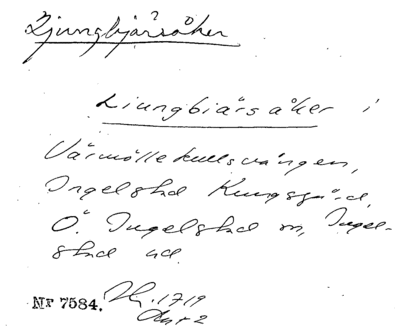 Ljungbjärsåker
Liungbiärs åker i
Värmöllekullsvången,
Ingelstad Kungsgård,
Ö. Ingelstad sn, Ingel-
stad hd.
Nr 7584. 1719
Akt 2